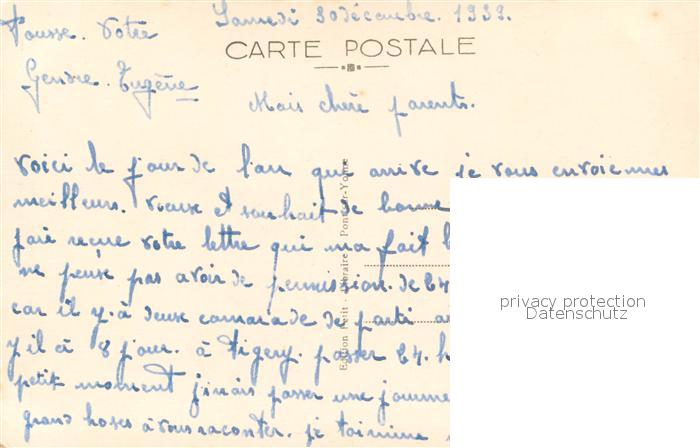 Samedi 30 décembre. 1939.
Pousse. Votre
CARTE POSTALE
Gendre. Eugène
Mais chère parents.
voici le jour de l'an que arrive je vous envoiennes
meilleurs. voeux et souhait de bonne
jai reçue votre lettre qui ma fait
ne peuse pas avoir de permission. de 24
car il y. à deuse camarade de parti
y il à 8 jour. à Tigery. passer 24. h
petit moment j'irais passer une journee
grand hoses à vous raconter. je taimine
Edition Petit - Libraire - Pont-sur-Yonne
privacy protection
Datenschutz